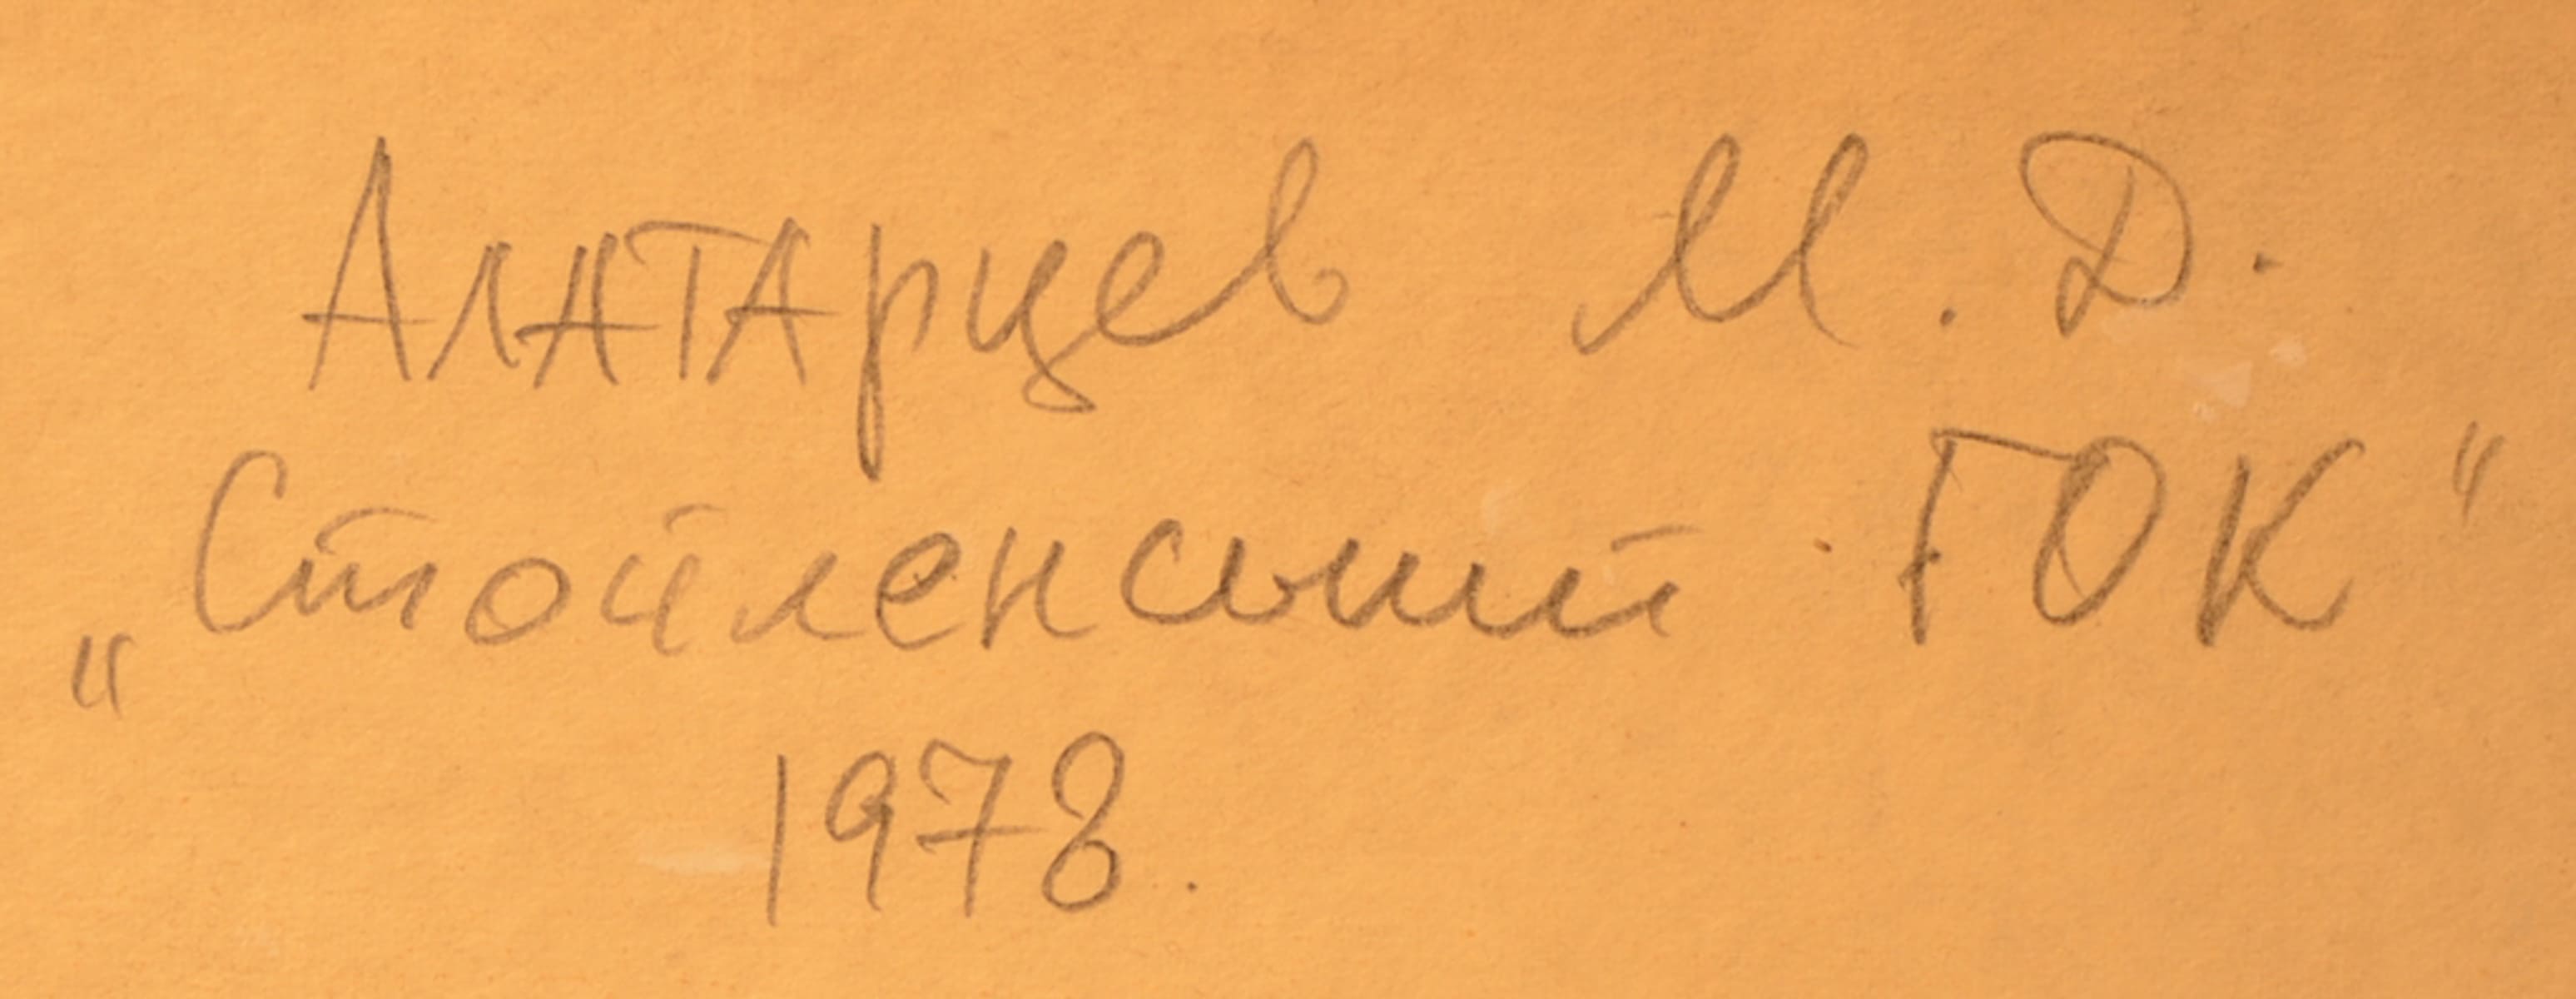 Алатарцев М. Д.
„Стойленский ГОК“
1978.